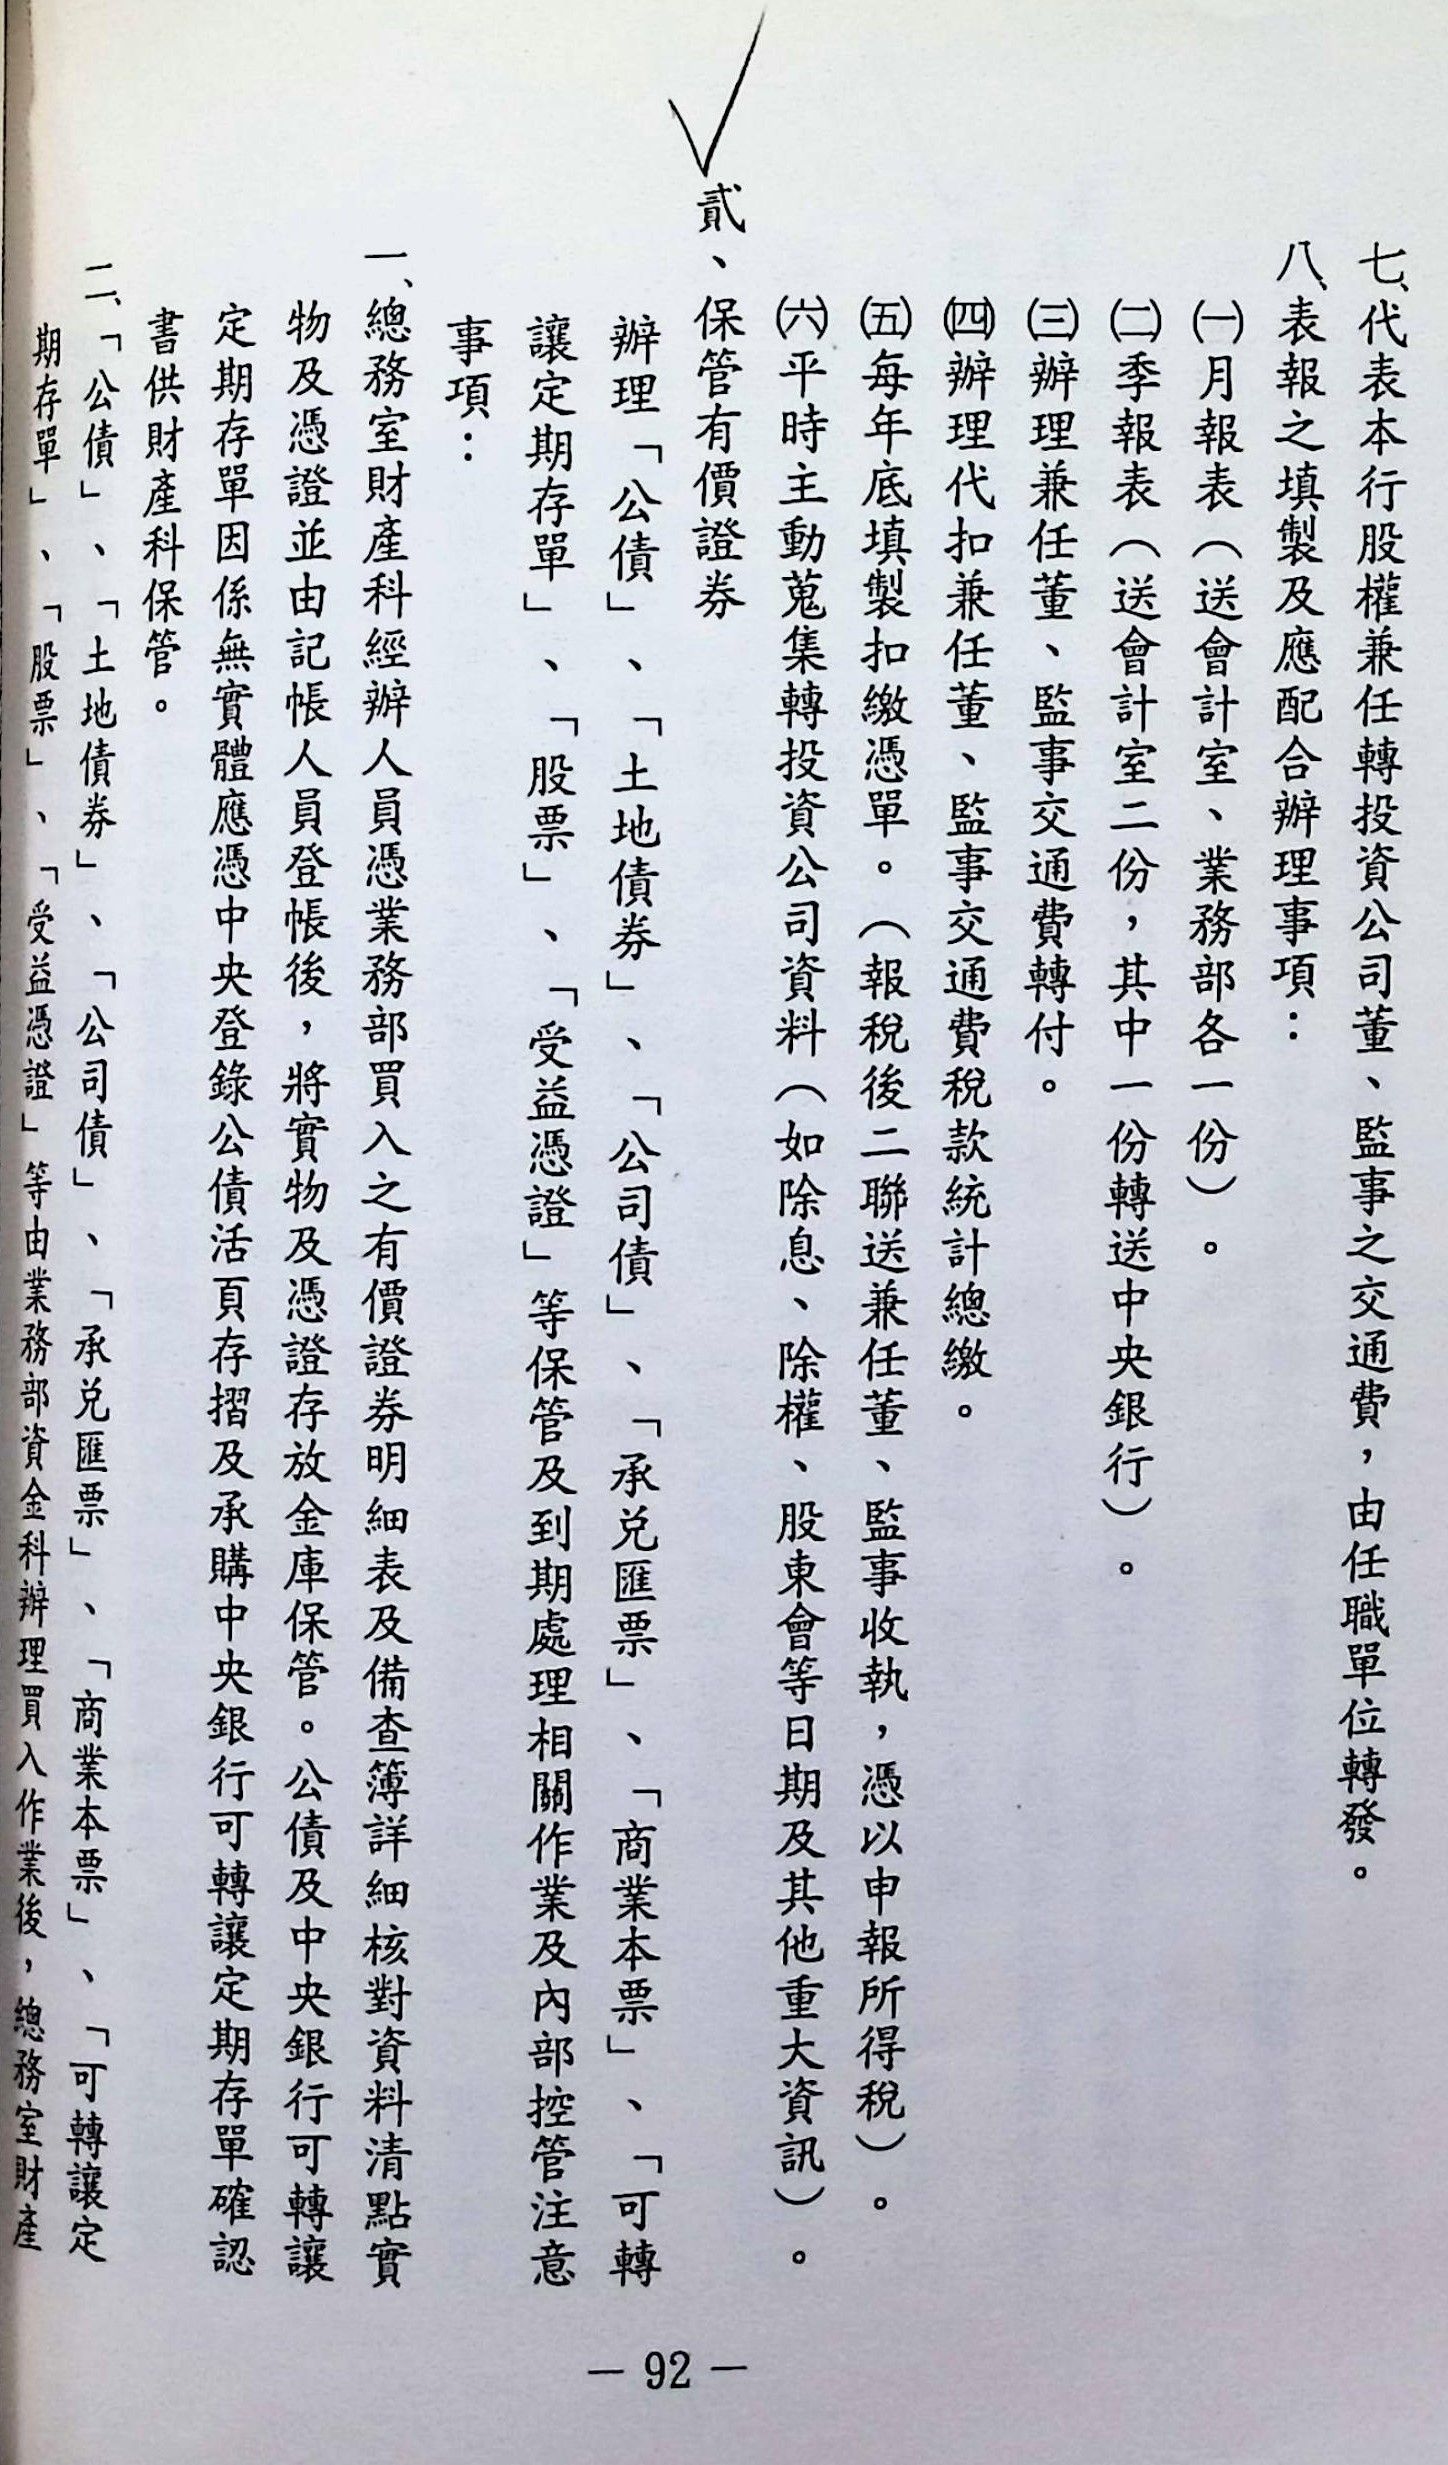 七、代表本行股權兼任轉投資公司董、監事之交通費，由任職單位轉發。
八、表報之填製及應配合辦理事項：
㈠月報表（送會計室、業務部各一份）。
㈡季報表（送會計室二份，其中一份轉送中央銀行）。
㈢辦理兼任董、監事交通費轉付。
㈣辦理代扣兼任董、監事交通費稅款統計總繳。
㈤每年底填製扣繳憑單。（報稅後二聯送兼任董、監事收執，憑以申報所得稅）。
㈥平時主動蒐集轉投資公司資料（如除息、除權、股東會等日期及其他重大資訊）。
貳、保管有價證券
辦理「公債」、「土地債券」、「公司債」、「承兌匯票」、「商業本票」、「可轉
讓定期存單」、「股票」、「受益憑證」等保管及到期處理相關作業及內部控管注意
事項：
一、總務室財產科經辦人員憑業務部買入之有價證券明細表及備查簿詳細核對資料清點實
物及憑證並由記帳人員登帳後，將實物及憑證存放金庫保管。公債及中央銀行可轉讓
定期存單因係無實體應憑中央登錄公債活頁存摺及承購中央銀行可轉讓定期存單確認
書供財產科保管。
二、「公債」、「土地債券」、「公司債」、「承兌匯票」、「商業本票」、「可轉讓定
期存單」、「股票」、「受益憑證」等由業務部資金科辦理買入作業後，總務室財產
— 92 —